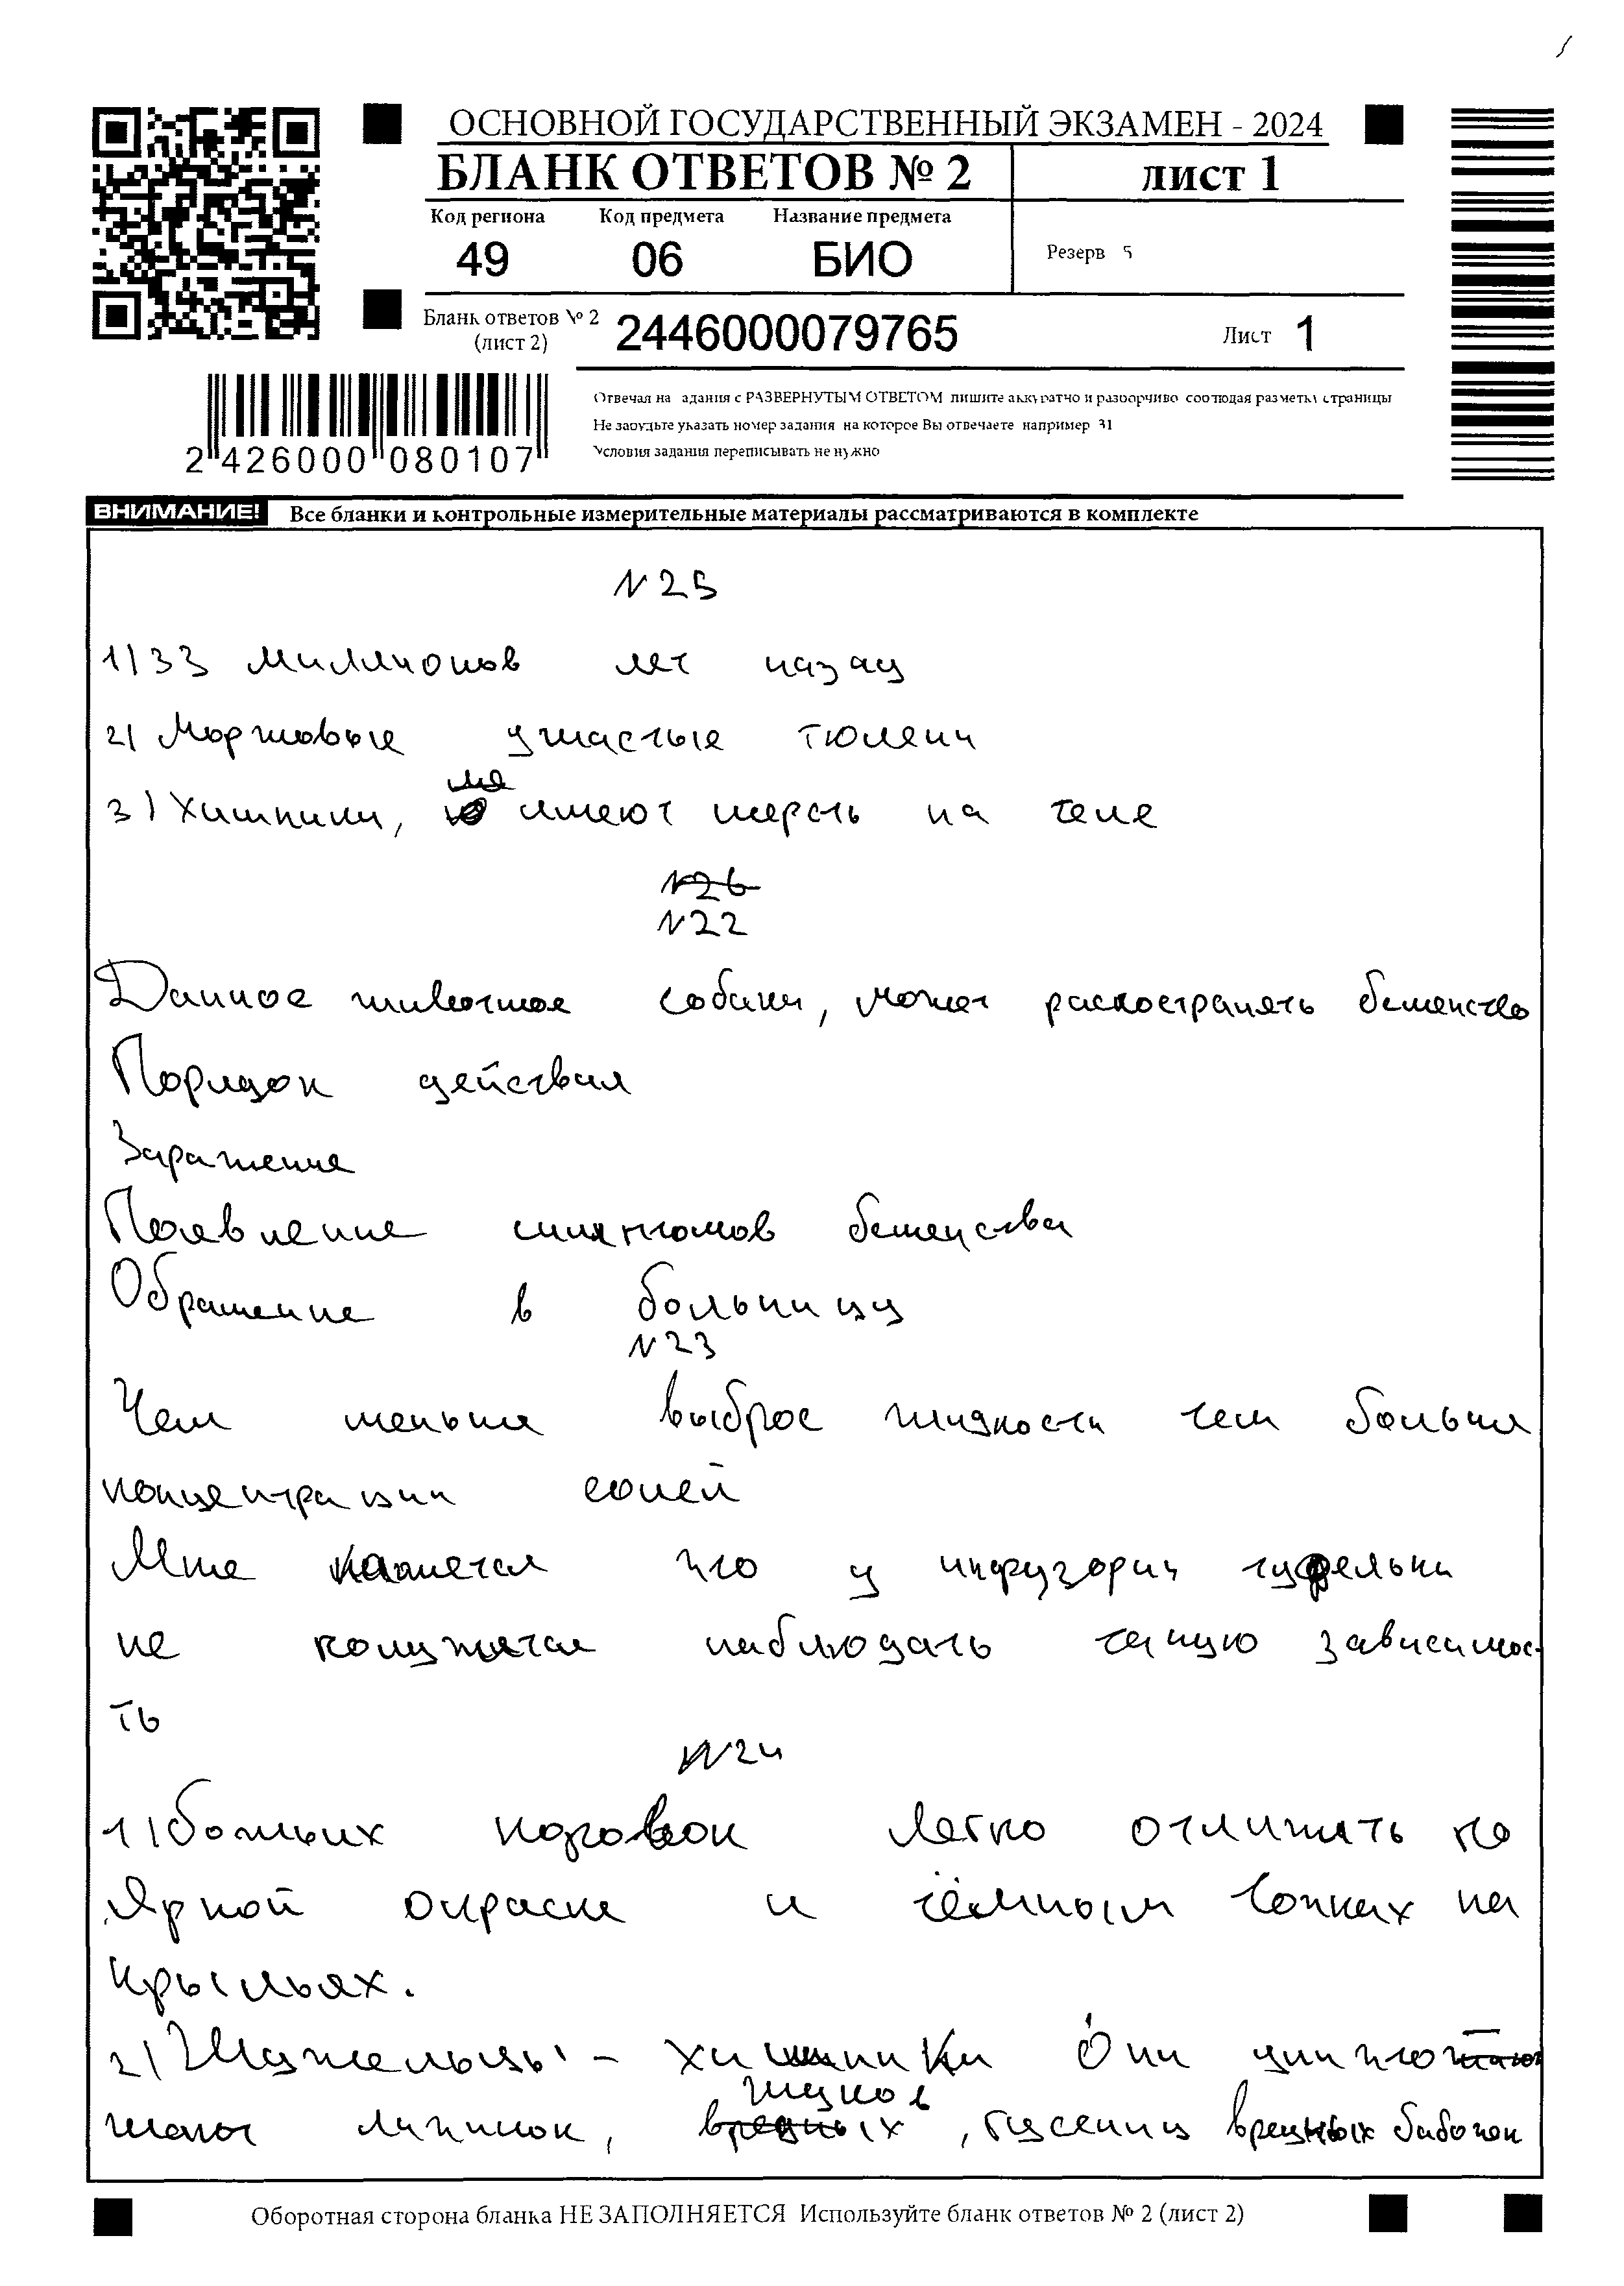 ОСНОВНОЙ ГОСУДАРСТВЕННЫЙ ЭКЗАМЕН - 2024
БЛАНК ОТВЕТОВ № 2
лист 1
Код региона Код предмета Название предмета
49 06 БИО
Резерв 5
Бланк ответов № 2
(лист 2)
2446000079765
Лист 1
2 426000 080107
Отвечая на задания с РАЗВЕРНУТЫМ ОТВЕТОМ пишите аккуратно и разборчиво соблюдая разметку страницы
Не забудьте указать номер задания на которое Вы отвечаете например 31
Условия задания переписывать не нужно
ВНИМАНИЕ! Все бланки и контрольные измерительные материалы рассматриваются в комплекте
N 25
1) 33 миллионов лет назад
2) Моржовые ушастые тюлени
3) Хищники, имеют шерсть на теле
N26
N22
Данное животное собаки, может распостранять бешенство
Порядок действия
Заражение
Появление симптомов бешенства
Обращение в больницу
N23
Чем меньше выброс жидкости тем больше
концентрации солей
Мне кажется что у инфузории туфельки
не получится наблюдать такую зависимос-
ть
N24
1) Божьих коровок легко отличить по
Яркой окраске и тёмным точках на
крыльях.
2) - хищники Они уничто
жают личинок, жуков, гусениц вредных бабочек
Оборотная сторона бланка НЕ ЗАПОЛНЯЕТСЯ Используйте бланк ответов № 2 (лист 2)